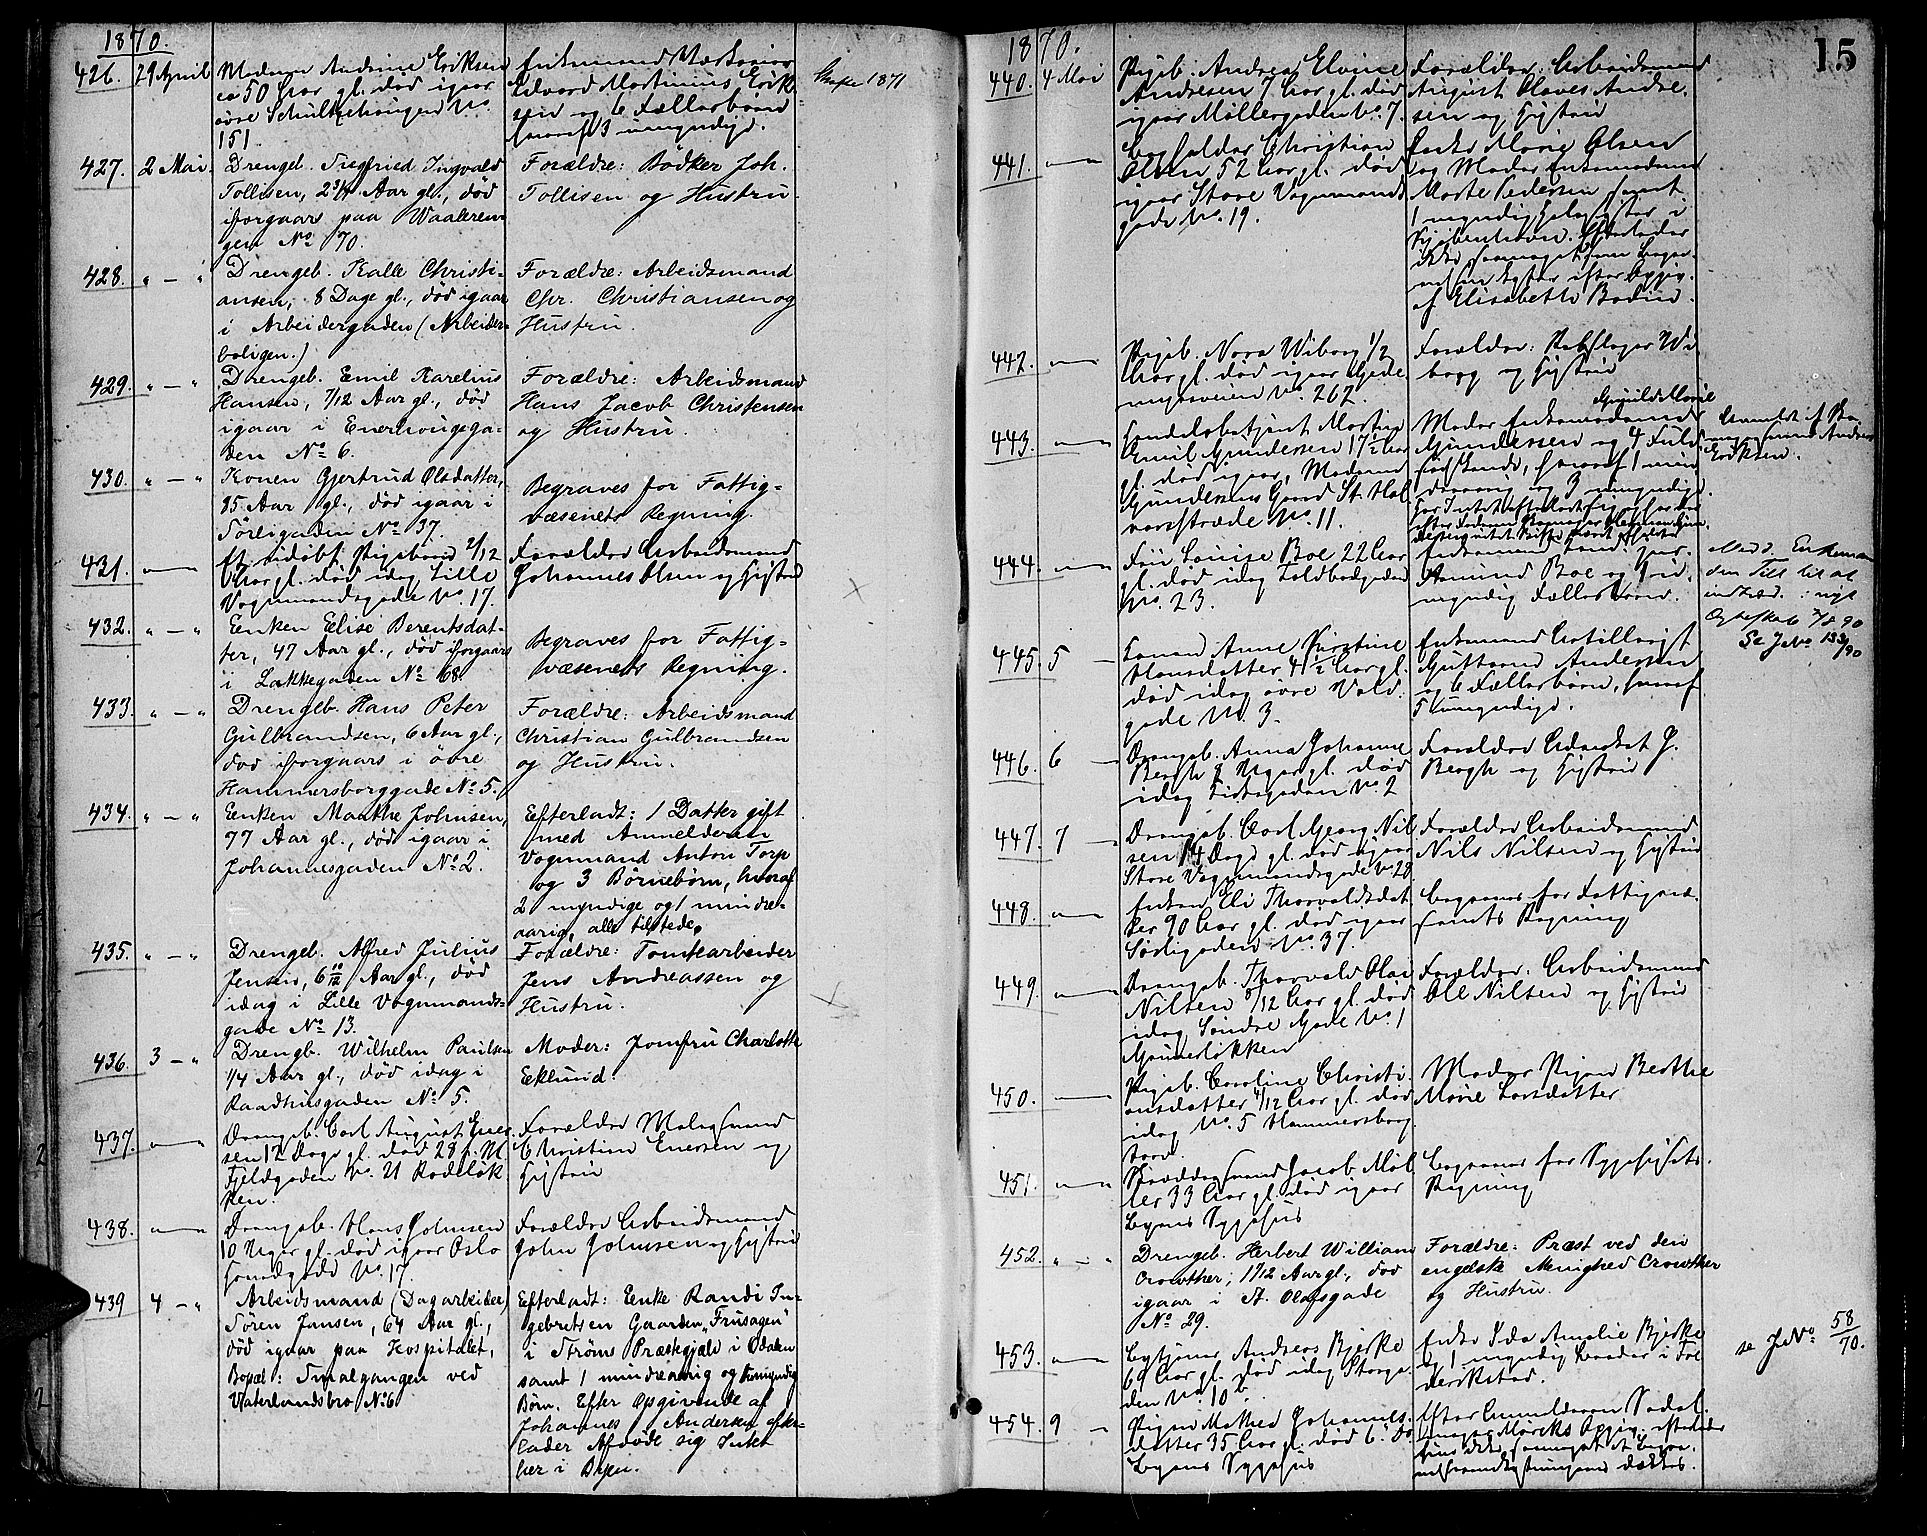 1870.
426. 29 April Madam Andrine Eriksen
ca 50 Aar gl. død igaar
øvre Schultzehaugen No
151.
Enkemand Edvard Martinius Erik-
sen og 6 Fællesbørn
hvoraf 3 umyndige.
1871
427. 2 Mai. Drengeb. Siegfried Ingvald
Tollisen, 2 3/4 Aar gl., død
iforgaars paa Waaleren-
gen No 70.
Forældre: Bödker Joh.
Tollisen og Hustru
428. " — " Drengeb. Kalle Christi-
ansen, 8 Dage gl., död igaar
i Arbeidergaden (Arbeider-
boligen.)
Forældre: Arbeidsmand
Chr. Christiansen og
Hustru.
429. " — " Drengeb. Emil Karelius
Hansen, 7/12 Aar gl., död
igaar i Enerhougsga-
den No 6.
Forældre: Arbeidsmand
Hans Jacob Christensen
og Hustru.
430. " — " Konen Gjertrud Olsdatter,
85 Aar gl., död igaar i
Törtigaden No 37.
Begraves for Fattig-
væsenets Regning.
431. " — " Et udøbt Pigebarn 2/12
Aar gl. død idag Lille
Vognmandsgade No. 17.
Forældre Arbeidsmand
Johannes Olsen og Hustru
432. " — " Enken Elise Berentsdat-
ter, 47 Aar gl., död iforgaars
i Lakkegaden No 68
Begraves for Fattig-
væsenets Regning.
433. " — " Drengeb. Hans Peter
Gulbrandsen, 6 Aar gl.,
död iforgaars i övre
Hammersborggade No 5.
Forældre: Arbeidsmand
Christian Gulbrandsen
og Hustru.
434. " — " Enken Marthe Johnsen,
77 Aar gl., død igaar i
Johannesgaden No 2.
Efterladt: 1 Datter gift
med Anmelderen
Vognmand Anton Torp
og 3 Börnebörn, hvoraf
2 myndige og 1 mindre-
aarig, alle tilstede.
435. " — " Drengeb. Alfred Julius
Jensen, 6 10/12 Aar gl., död
idag i Lille Vognmands-
gade No 13.
Forældre: Tomtearbeider
Jens Andreassen og
Hustru.
436. 3 — " Drengb. Wilhelm Paulsen
1/4 Aar gl., död idag i
Raadhusgaden No 5.
Moder: Jomfru Charlotte
Eklund.
437. " — " Drengeb. Carl August Ener-
sen 12 Dage gl. død 28 f. M
Fjeldgaden No. 21 Rodeløk
ken.
Forældre Malersvend
Christian Enersen og
Hustru
438. " — " Drengeb. Hans Johnsen
10 Uger gl. død igaar Oslo
Hovedgade No. 17.
Forældre Arbeidsmand
John Johnsen og Hustru
439 4 — " Arbeidsmand (Dagarbeider)
Sören Jansen, 64 Aar gl.,
död igaar paa Hospitalet,
Bopæl: Smalgangen ved
Vaterlandsbro No 6
Efterladt: Enke Randi In-
gebretsen Gaarden „Frusagen"
i Ströms Præstegjæld i Odalen
samt 1 mindreaarig og 1 umyndig
Børn. Efter Opgivende af
Johannes Andersen efter-
lader Afdøde sig Intet
her i Byen.
15
1870.
440. 4 Mai Pigeb. Andrea Elvine
Andresen 7 Aar gl. død
igaar Møllergaden No. 7.
Forældre: Arbeidsmand
August Olaves Andre-
sen og Hustru
441. " — " Christian
Olsen 52 Aar gl. død
igaar Store Vognmands
gade No. 19.
Enke Marie Olsen
og Moder Enkemadame
Marte Pedersen samt
1 myndig i
Kjøbenhavn. Efterlader
ikke
af Elisabeth Bodin.
442. " — " Pigeb. Nora Wiborg 1/2
Aar gl. død igaar Gede
myrsveien No. 262.
Forældre: Rebslager Wi
borg og Hustru
443. " — " Handelsbetjent Martin
Emil Gundersen 17 1/2 Aar
gl. død igaar, Madame
Gundersens Gaard St. Hal
vorstræde No. 11.
Moder Enkemadame Gunild Marie
Gundersen og 4 Fuld
søskende, hvoraf 1 min
dreaarig og 3 umyndige.
Anmeldt af
Andreas
Eriksen.
444. " — " Frk. Louise Boe 22 Aar
gl. død idag Toldbodgaden
No. 23.
Enkemand
Amund Boe og 1 u-
myndig Fællesbarn.
Medd. Enkeman
den Till. til at
indtræd. i nyt
Ægteskab 7/8 90
Se J No 133/90
445. 5 — Konen Anne Kirstine
Hansdatter 41 1/2 Aar gl.
død idag øvre Vold
gade No. 3.
Enkemand Artillerist
Guttorm Andersen
og 6 Fællesbørn, hvoraf
5 umyndige.
446. 6 — Drengeb. Anna Johanne
Bergh 8 Uger gl. død
idag Toldbodgaden No. 2
Forældre Advokat J.
Bergh og Hustru
447. 7 — Drengeb. Carl Georg Nil
sen 14 Dage gl. død igaar
Store Vognmandsgade No. 28
Forældre Arbeidsmand
Nils Nilsen og Hustru
448. " — " Enken Eli Thorvaldsdat
ter 90 Aar gl. død igaar
Törtigaden No. 37.
Begraves for Fattigvæ-
senets Regning
449. " — " Drengeb. Thorvald Olai
Nilsen 8/12 Aar gl. død
idag Søndre Gade No. 1
Grünerløkken
Forældre: Arbeidsmand
Ole Nilsen og Hustru
450. " — " Pigeb. Caroline Christi-
ansdatter 4/12 Aar gl. død
idag No. 5 Hammersborg
torv.
Moder Pigen Berthe
Marie Larsdatter
451. " — " Skræddersvend Jacob Møl
ler 33 Aar gl. død igaar
Byens Sygehus
Begraves for Sygehusets
Regning
452. " — " Drengeb. Herbert William
Crowther, 1 1/12 Aar gl., død
igaar i St. Olafsgade
No 29.
Forældre: Præst ved den
engelske Menighed Crowther
og Hustru.
453. " — " Andreas Bjerke
Aar gl. død idag Storga-
den No. 10 b
Enke Ida Amalie Bjerke
og 1 myndig Broder i Fre
derikstad.
se J No 58/70.
454. 9 — Pigen Mathea Johannes-
datter 35 Aar gl. død 6. ds
Byens Sygehus
Efter Anmelderen
dækkes.